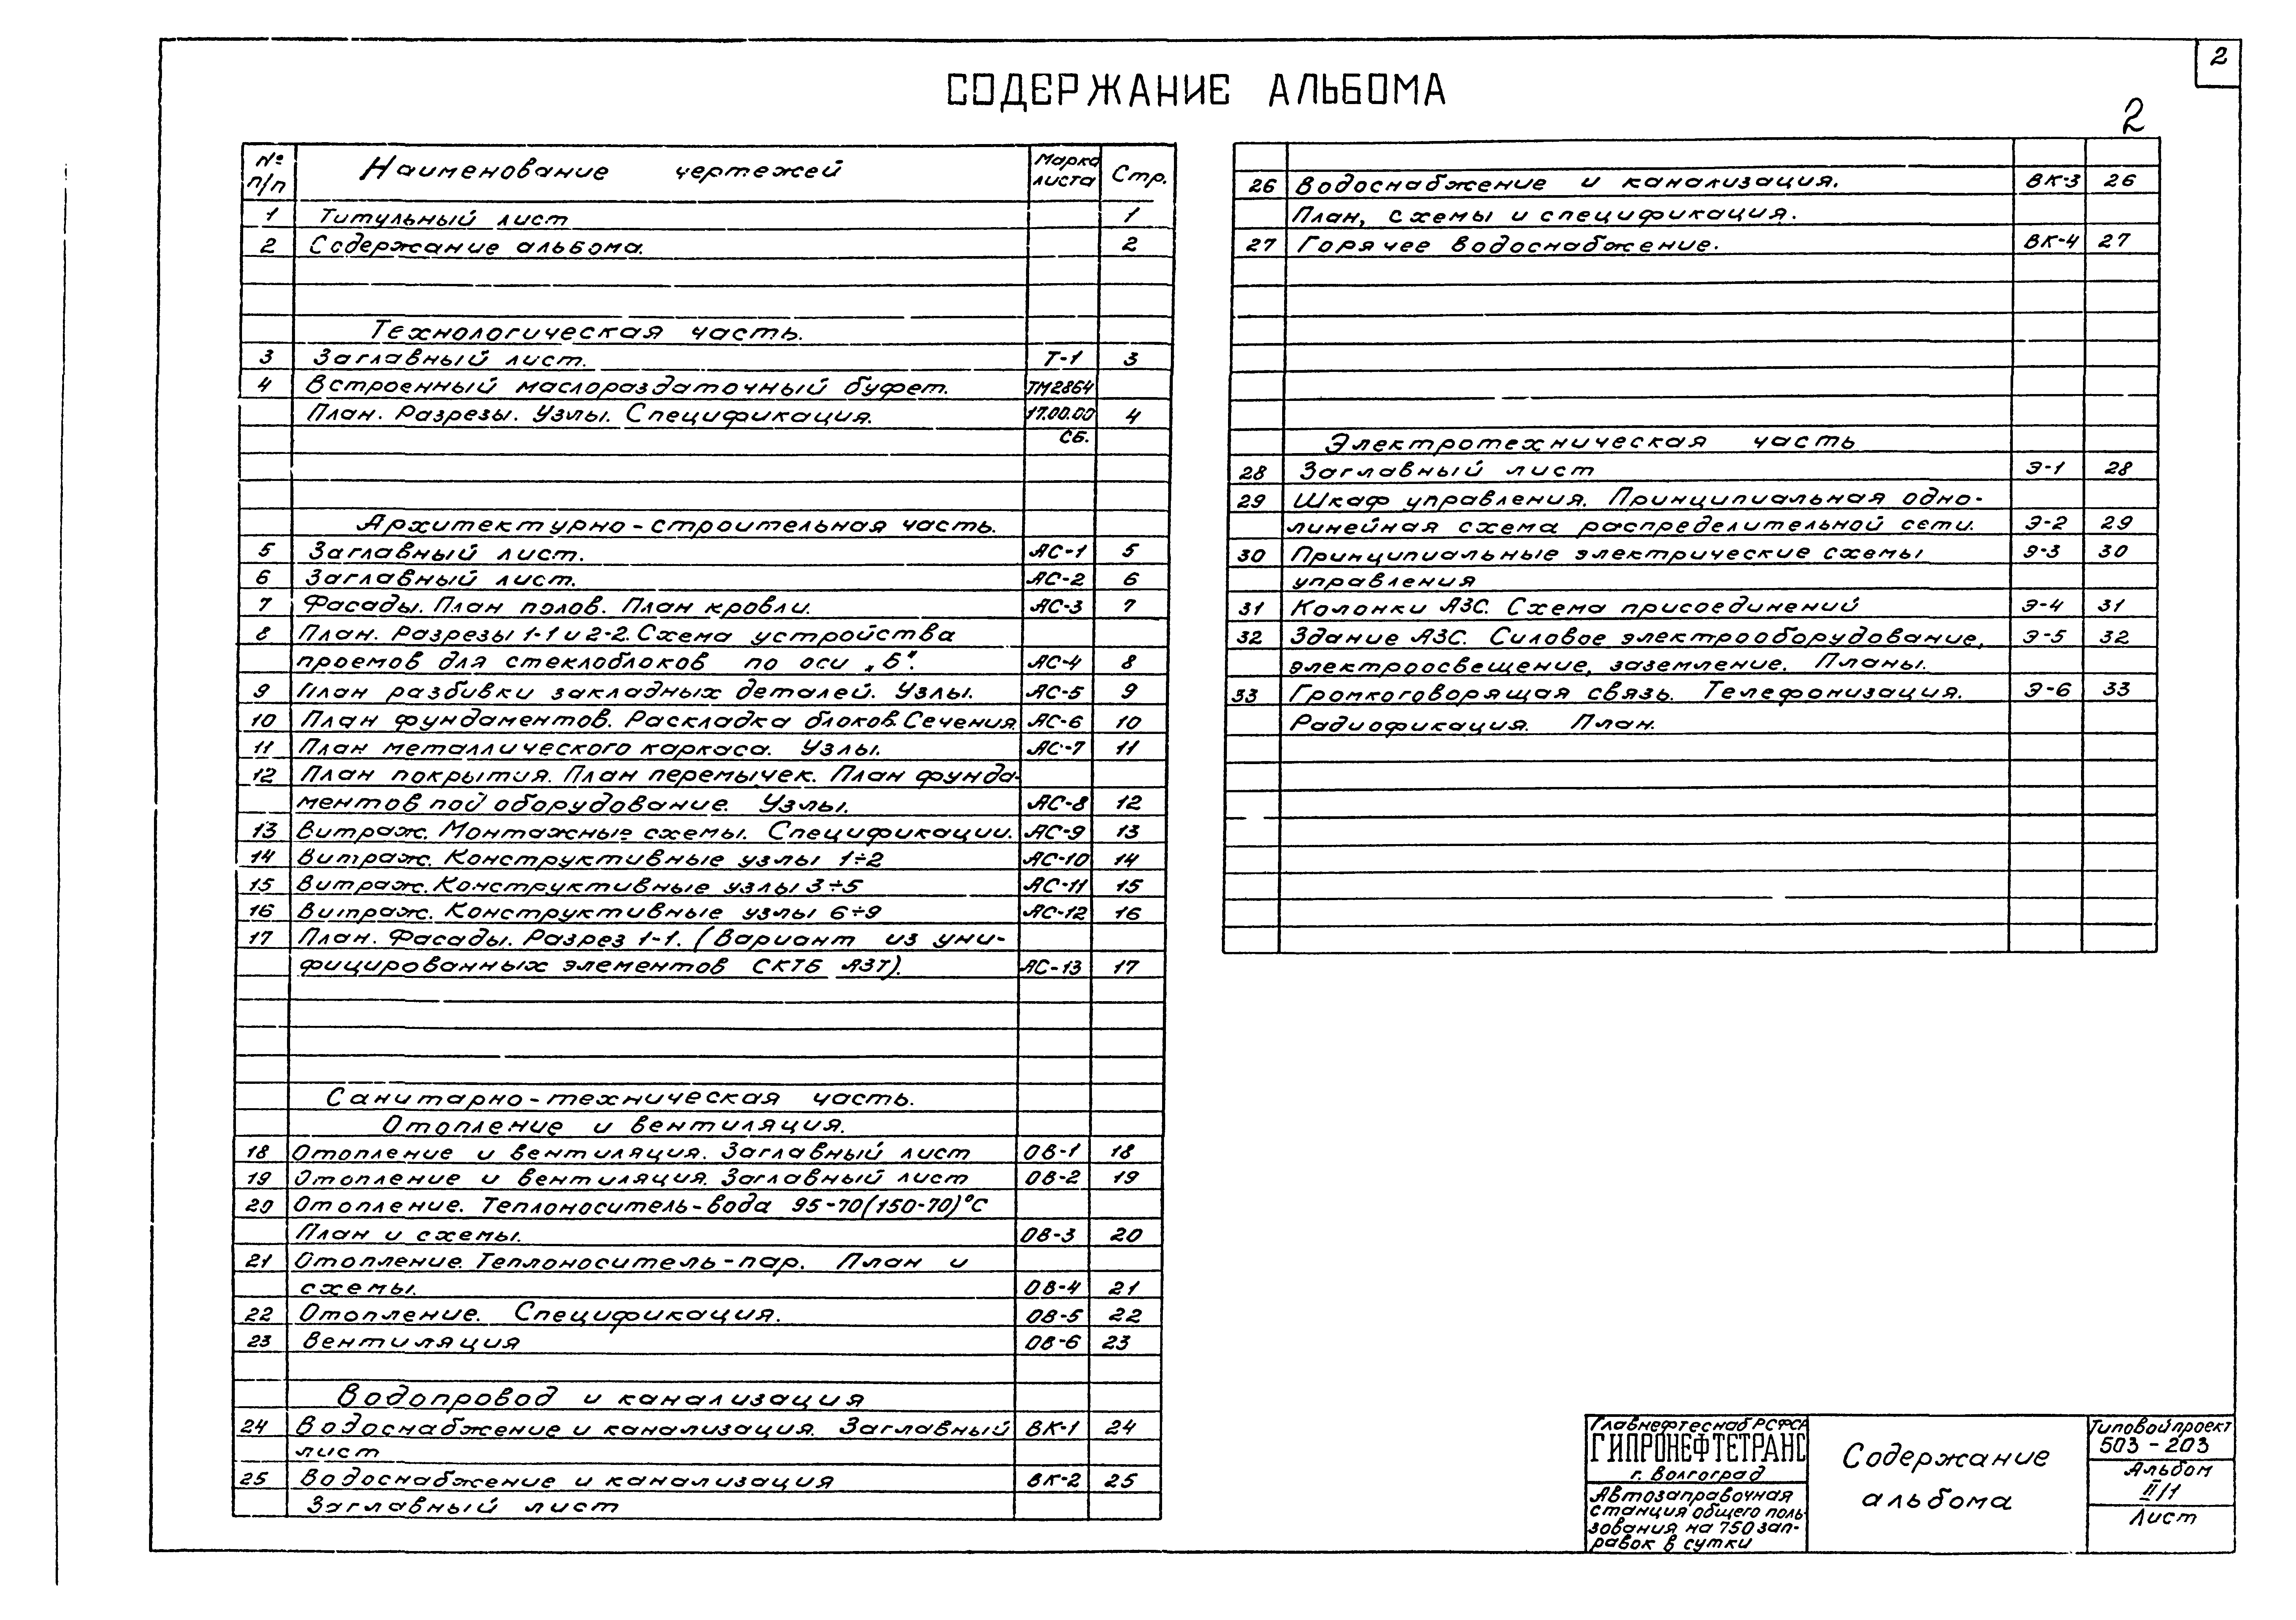 2
СОДЕРЖАНИЕ АЛЬБОМА
2
№ п/п Наименование чертежей Марка листа Стр.
1 Титульный лист 1
2 Содержание альбома. 2
Технологическая часть.
3 Заглавный лист. Т-1 3
4 Встроенный маслораздаточный буфет. ТМ2864
План. Разрезы. Узлы. Спецификация. 17.00.00 4
СБ.
Архитектурно-строительная часть.
5 Заглавный лист. АС-1 5
6 Заглавный лист. АС-2 6
7 Фасады. План полов. План кровли. АС-3 7
8 План. Разрезы 1-1 и 2-2. Схема устройства
проемов для стеклоблоков по оси „Б". АС-4 8
9 План разбивки закладных деталей. Узлы. АС-5 9
10 План фундаментов. Раскладка блоков. Сечения. АС-6 10
11 План металлического каркаса. Узлы. АС-7 11
12 План покрытия. План перемычек. План фунда-
ментов под оборудование. Узлы. АС-8 12
13 Витраж. Монтажные схемы. Спецификации. АС-9 13
14 Витраж. Конструктивные узлы 1÷2 АС-10 14
15 Витраж. Конструктивные узлы 3÷5 АС-11 15
16 Витраж. Конструктивные узлы 6÷9 АС-12 16
17 План. Фасады. Разрез 1-1. (Вариант из уни-
фицированных элементов СКТБ АЗТ). АС-13 17
Санитарно-техническая часть.
Отопление и вентиляция.
18 Отопление и вентиляция. Заглавный лист ОВ-1 18
19 Отопление и вентиляция. Заглавный лист ОВ-2 19
20 Отопление. Теплоноситель-вода 95-70(150-70)°С
План и схемы. ОВ-3 20
21 Отопление. Теплоноситель-пар. План и
схемы. ОВ-4 21
22 Отопление. Спецификация. ОВ-5 22
23 Вентиляция ОВ-6 23
Водопровод и канализация
24 Водоснабжение и канализация. Заглавный ВК-1 24
лист
25 Водоснабжение и канализация ВК-2 25
Заглавный лист
26 Водоснабжение и канализация. ВК-3 26
План, схемы и спецификация.
27 Горячее водоснабжение. ВК-4 27
Электротехническая часть
28 Заглавный лист Э-1 28
29 Шкаф управления. Принципиальная одно-
линейная схема распределительной сети. Э-2 29
30 Принципиальные электрические схемы Э-3 30
управления
31 Колонки АЗС. Схема присоединений Э-4 31
32 Здание АЗС. Силовое электрооборудование, Э-5 32
электроосвещение, заземление. Планы.
33 Громкоговорящая связь. Телефонизация. Э-6 33
Радиофикация. План.
Главнефтеснаб РСФСР
ГИПРОНЕФТЕТРАНС
г. Волгоград
Автозаправочная
станция общего поль-
зования на 750 зап-
равок в сутки
Содержание
альбома
Типовой проект
503-203
Альбом
II/1
Лист